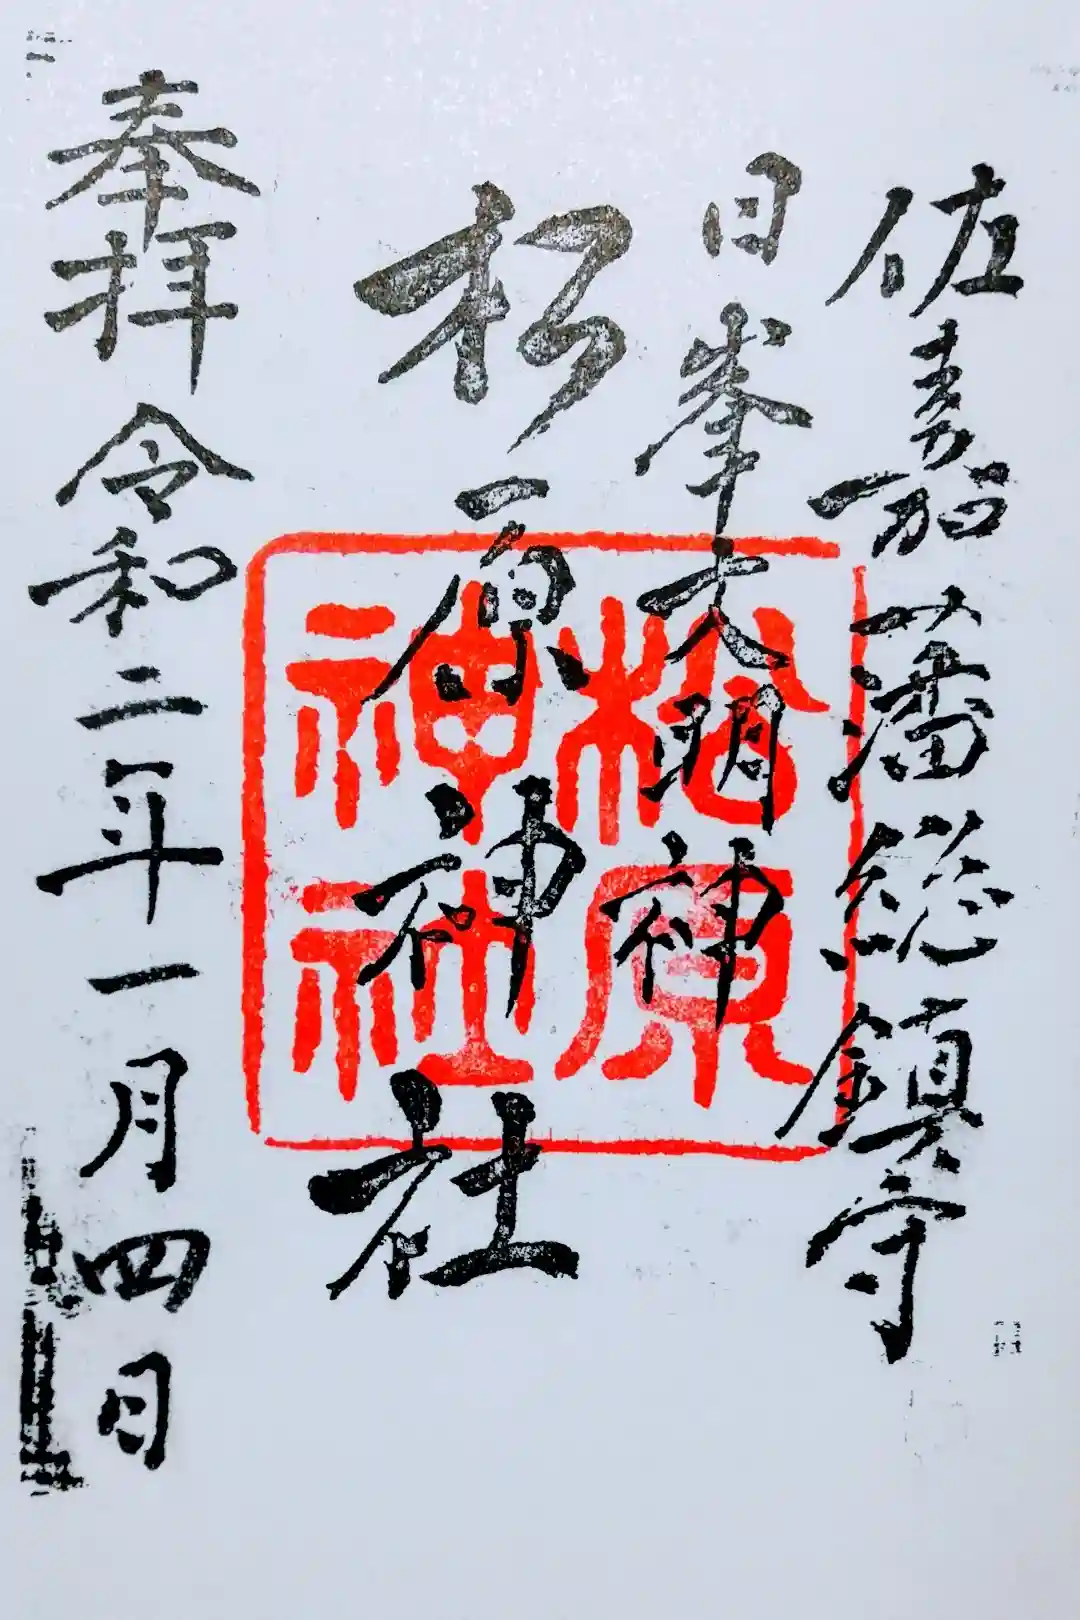 佐嘉藩総鎮守
日峯大明神
松原神社
奉拝 令和二年一月四日
松原
神社